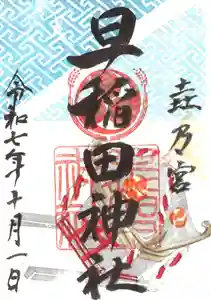 㐂乃宮
早稲田神社
令和七年十月一日